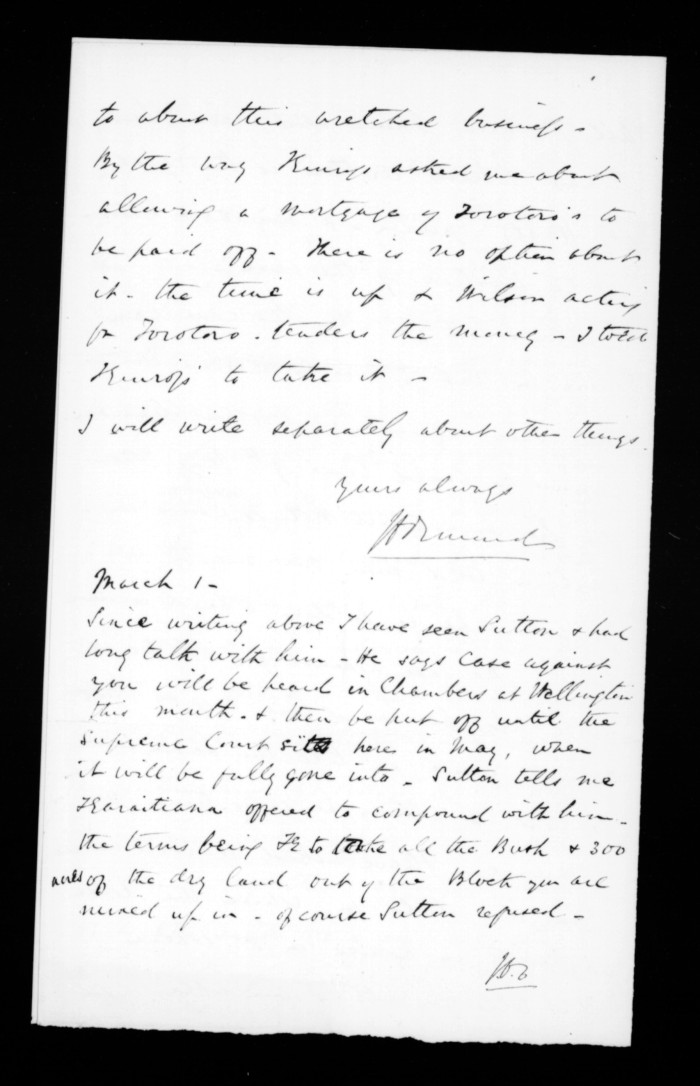 to about this wretched business -
By the way Kinross asked me about
allowing a mortgage of Torotoro's to
be paid off - There is no option about
it - the time is up & Wilson acting
for Torotoro - tenders the money - I told
Kinross to take it -
I will write separately about other things.
Yours always
JDOrmond
March 1 -
Since writing above I have seen Sutton & had
long talk with him - He says case against
you will be heard in Chambers at Wellington
this month - & then be put off until the
Supreme Court sits here in May, when
it will be fully gone into - Sutton tells me
Karaitiana offered to compound with him -
the terms being K to take all the Bush & 300
acres of the dry land out of the Block you are
mixed up in - of course Sutton refused -
JDO